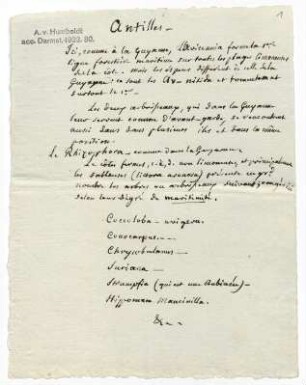 A. v. Humboldt
acc. Darmst. 1922. 80.
1
Antilles.
Ici, comme à la Guyane, l'Avicennia forme la 1re
ligne forestière maritime sur toutes les plages limoneuses
de la côte. mais les espèces diffèrent de celle de la
Guyane: ce sont les Av. nitida et tomentosa
surtout le 1er
Les deux arbrisseaux, qui dans la Guyane
leur servent comme d'avant-garde, se rencontrent
aussi dans plusieurs îles et dans la même
position.
Le Rhizophora comme dans la Guyane.
La côte ferme, c-à-d. non limoneuse, et principalement
les sableuses présente un grd
nombre des arbres ou arbrisseaux
selon leur dégré de maritimité.
Coccoloba uvifera
Conocarpus
Chrysobalanus
Suriana
(qui est une Rubiacée)
Hippomane Mancinilla
&c